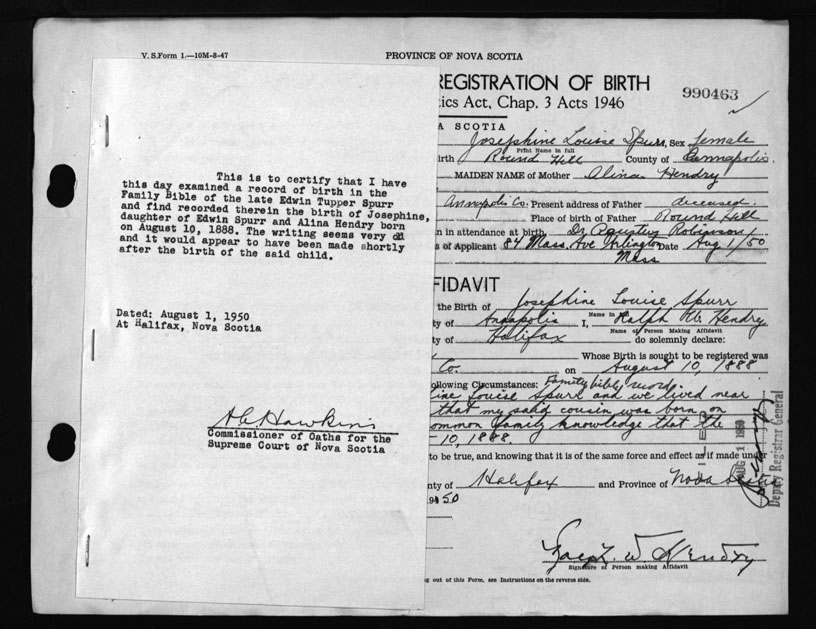 V. S. Form 1.—10M-8-47
PROVINCE OF NOVA SCOTIA
REGISTRATION OF BIRTH
tics Act, Chap. 3 Acts 1946
990463
A SCOTIA
Josephine Louise Spurr, Sex female
Print Name in full
irth Round Hill County of Annapolis
MAIDEN NAME of Mother Alina Hendry
Annapolis Co. Present address of Father deceased.
Place of birth of Father Round Hill
n in attendance at birth, Dr Robinson
s of Applicant 84 Mass. Ave Arlington Date Aug 1/50
Mass
This is to certify that I have
this day examined a record of birth in the
Family Bible of the late Edwin Tupper Spurr
and find recorded therein the birth of Josephine,
daughter of Edwin Spurr and Alina Hendry born
on August 10, 1888. The writing seems very old
and it would appear to have been made shortly
after the birth of the said child.
Dated: August 1, 1950
At Halifax, Nova Scotia
Commissioner of Oaths for the
Supreme Court of Nova Scotia
FIDAVIT
the Birth of Josephine Louise Spurr
ty of Annapolis I, Ralph W. Hendry
Name in full
Name of Person Making Affidavit
ty of Halifax do solemnly declare:
Whose Birth is sought to be registered was
Co. on August 10, 1888
ollowing Circumstances: Family bible record.
ine Louise Spurr and we lived near
that my said cousin was born on
ommon family knowledge that the
10, 1888
to be true, and knowing that it is of the same force and effect as if made under
nty of Halifax and Province of Nova Scotia
1950
AUG 1 1950
Deputy Registrar General
Ralph W Hendry
Signature of Person making Affidavit
ng out of this Form, see Instructions on the reverse side.